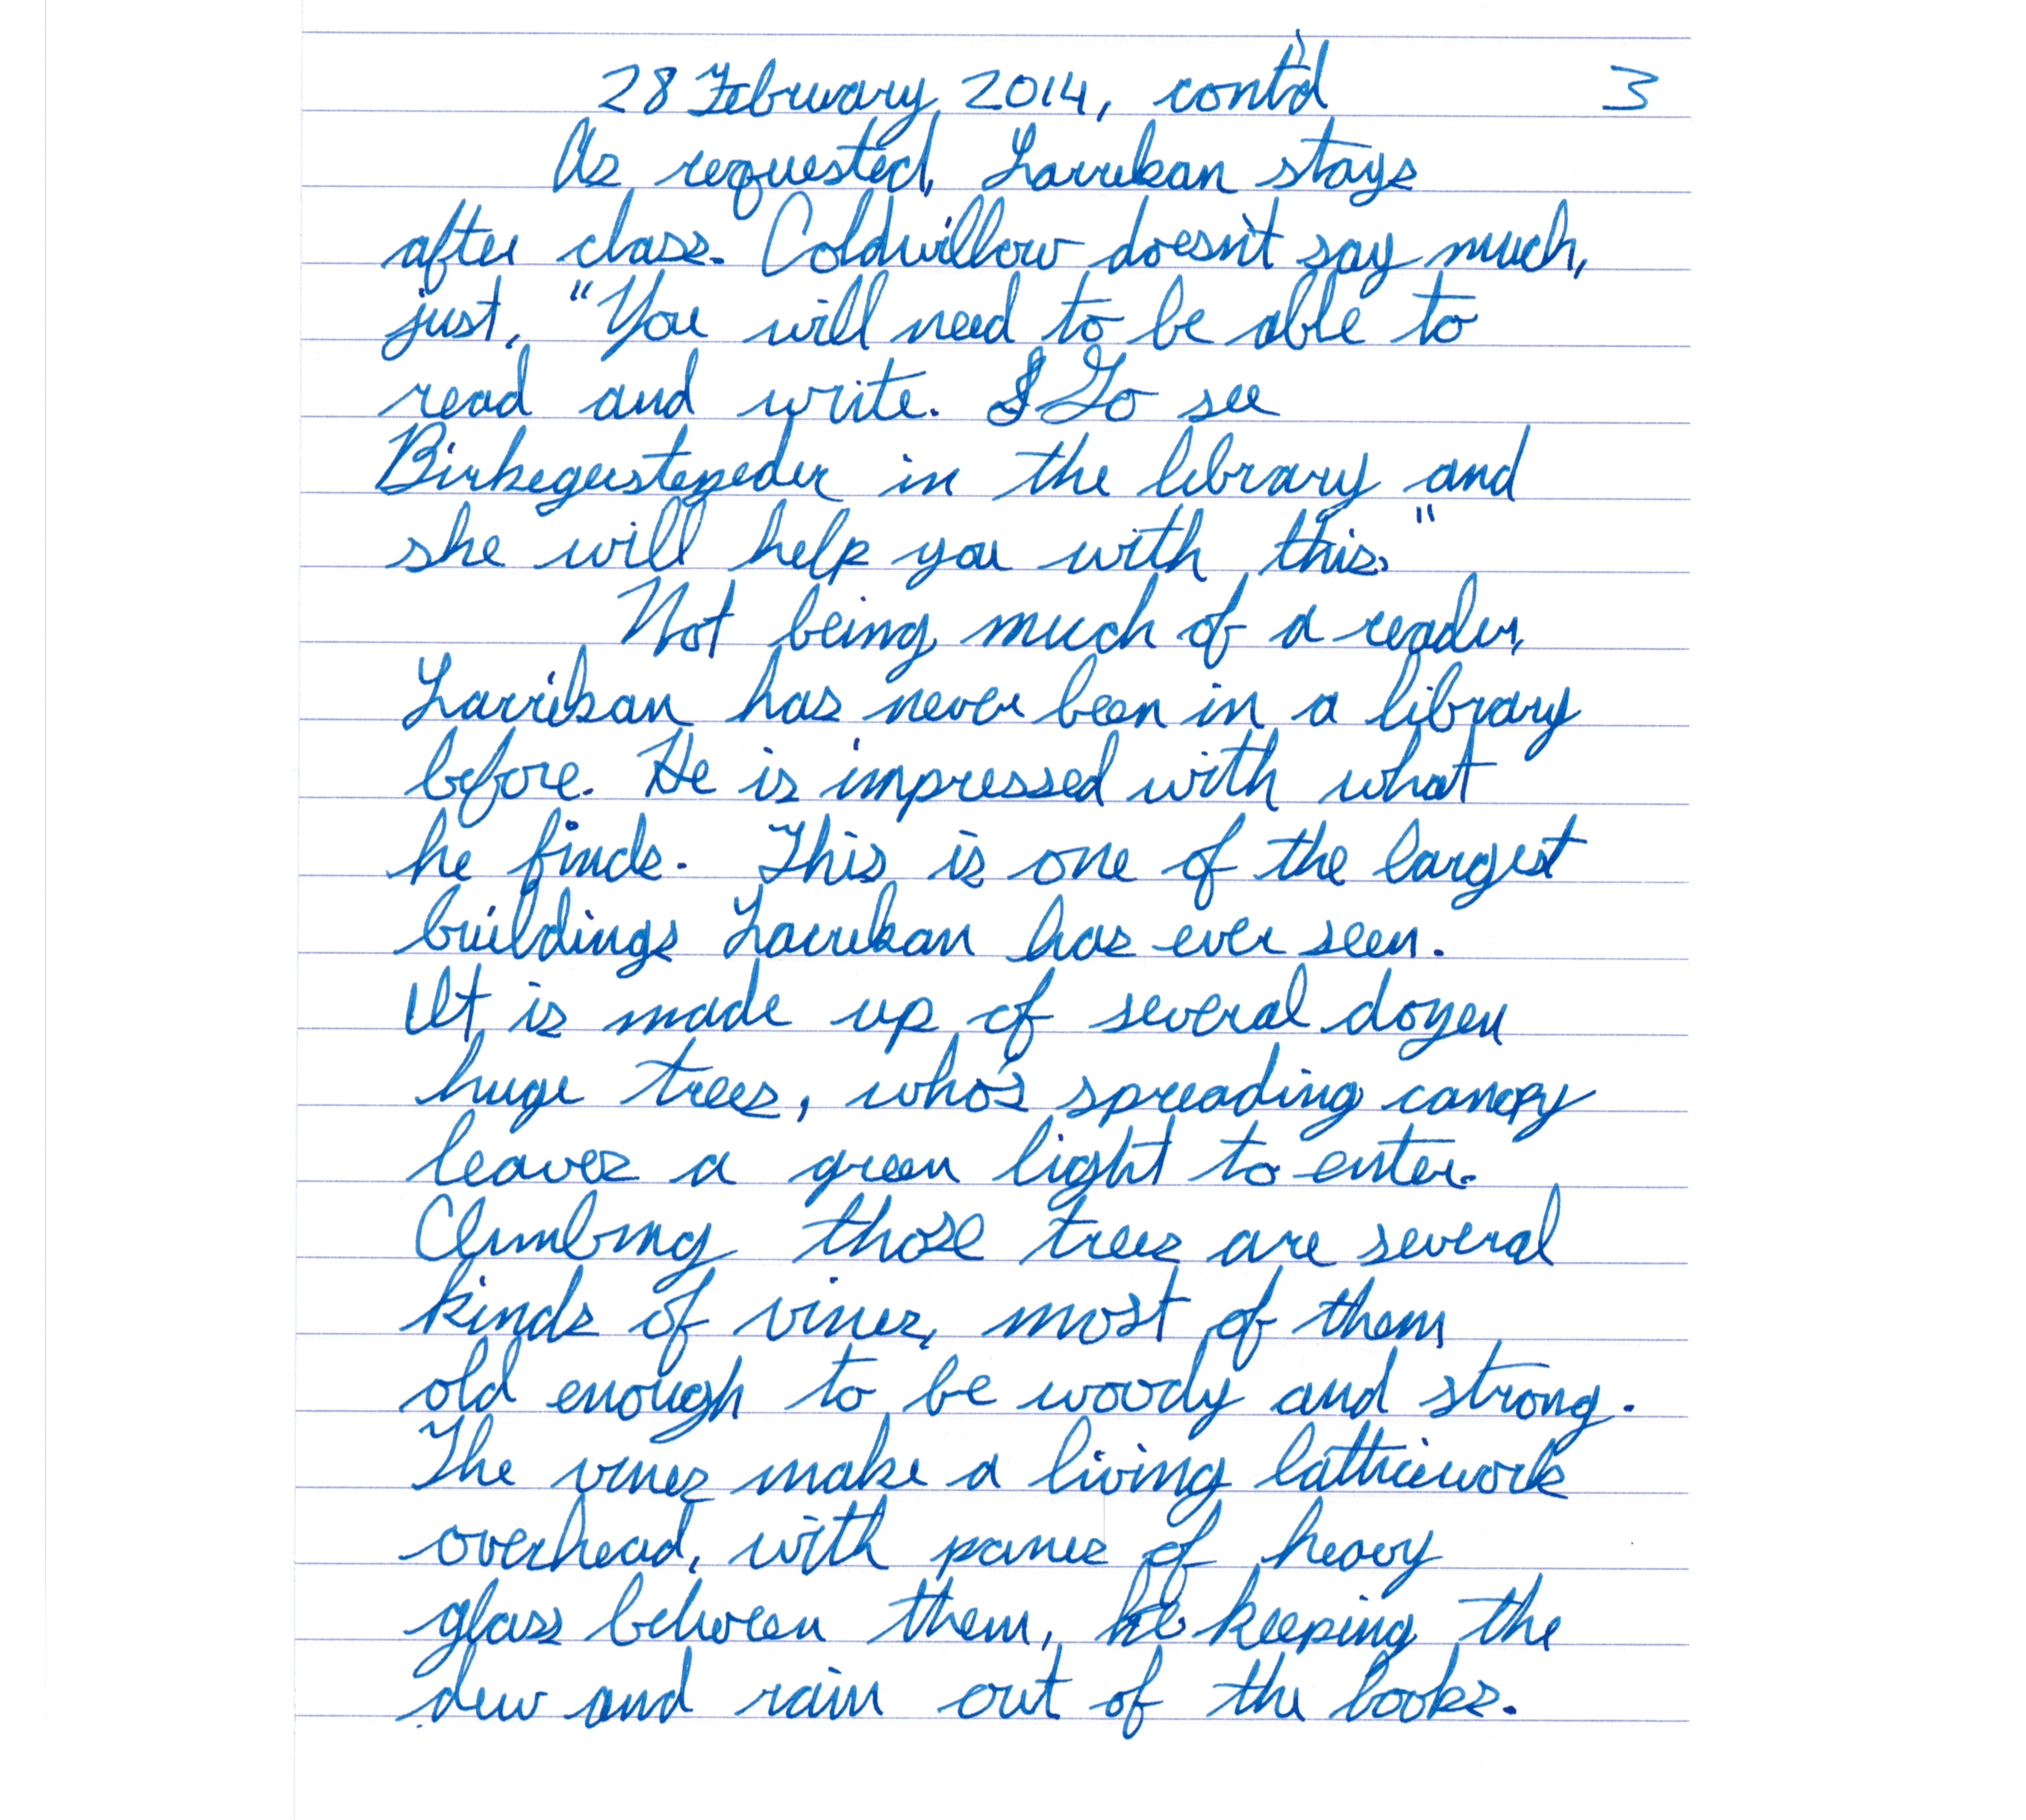 28 February 2014, cont'd 3
As requested, Larrikan stays
after class. Coldwillow doesn't say much,
just, "You will need to be able to
read and write. Go see
Birkegeistepeder in the library and
she will help you with this."
Not being much of a reader,
Larrikan has never been in a library
before. He is impressed with what
he finds. This is one of the largest
buildings Larrikan has ever seen.
It is made up of several dozen
huge trees, who's spreading canopy
leaves a green light to enter.
Climbing those trees are several
kinds of vines, most of them
old enough to be woody and strong.
The vines make a living latticework
overhead, with panes of heavy
glass between them, keeping the
dew and rain out of the books.